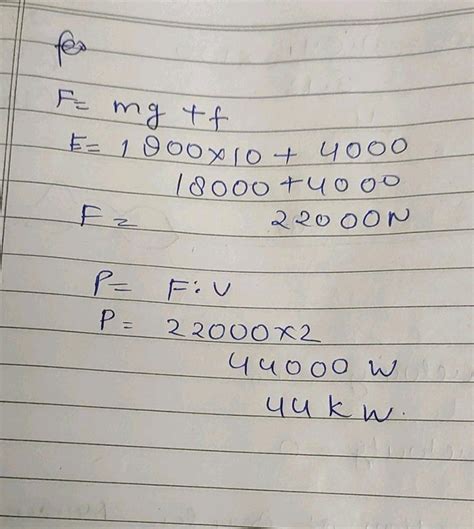 F= mg +f
E= 1800×10 + 4000
18000+4000
F= 22000N
P= F.V
P= 22000×2
44000 W
44 KW.